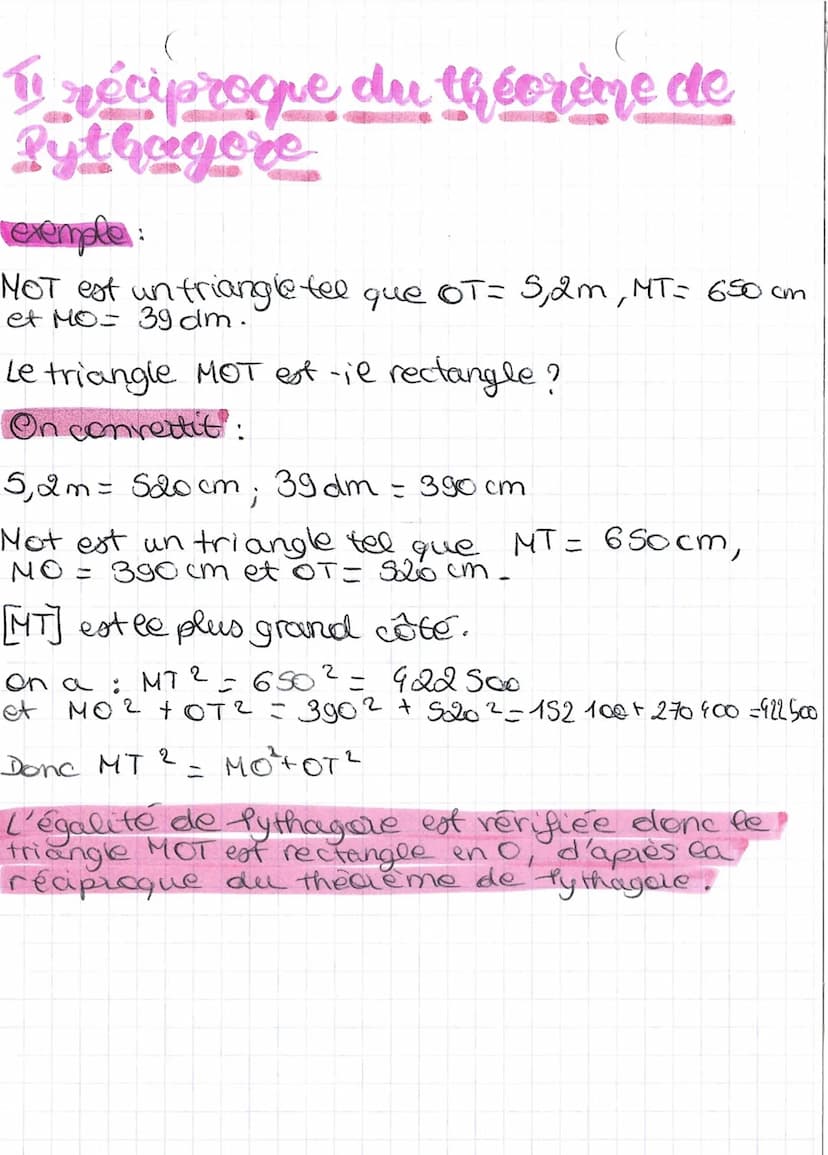 II réciproque du théorème de
Pythagore
exemple :
MOT est un triangle tel que OT = 5,2m, MT = 650 cm
et MO = 39 dm.
Le triangle MOT est-il rectangle ?
On convertit :
5,2m = 520 cm ; 39 dm = 390 cm
Mot est un triangle tel que MT = 650cm,
MO = 390 cm et OT = 520 cm.
[MT] est le plus grand côté.
on a : MT² = 650² = 422 500
et MO² + OT² = 390² + 520² = 152 100 + 270 400 = 422 500
Donc MT² = MO² + OT²
L'égalité de Pythagore est vérifiée donc le
triangle MOT est rectangle en O, d'après la
réciproque du théorème de Pythagore.